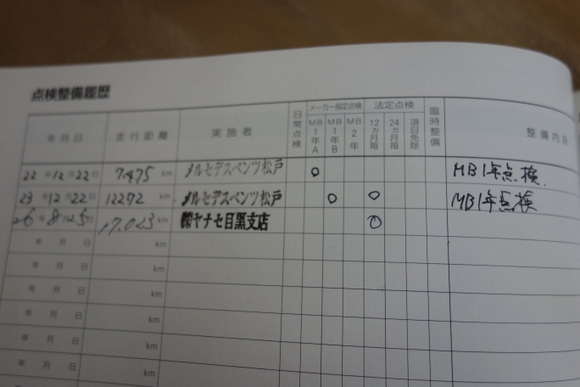 点検整備履歴
年月日 走行距離 実施者 日常点検 メーカー指定点検 MB1年A MB1年B MB2年 法定点検 12ヵ月毎 24ヵ月毎 項目免除 臨時整備 整備内容
22年12月22日 7,475 km メルセデスベンツ松戸 ○ MB1年点検.
23年12月22日 12272 km メルセデスベンツ松戸 ○ ○ MB1年点検
26年8月25日 17,023 km ㈱ヤナセ目黒支店 ○
年月日 km
年月日 km
年月日 km
年月日 km
年月日 km
年月日